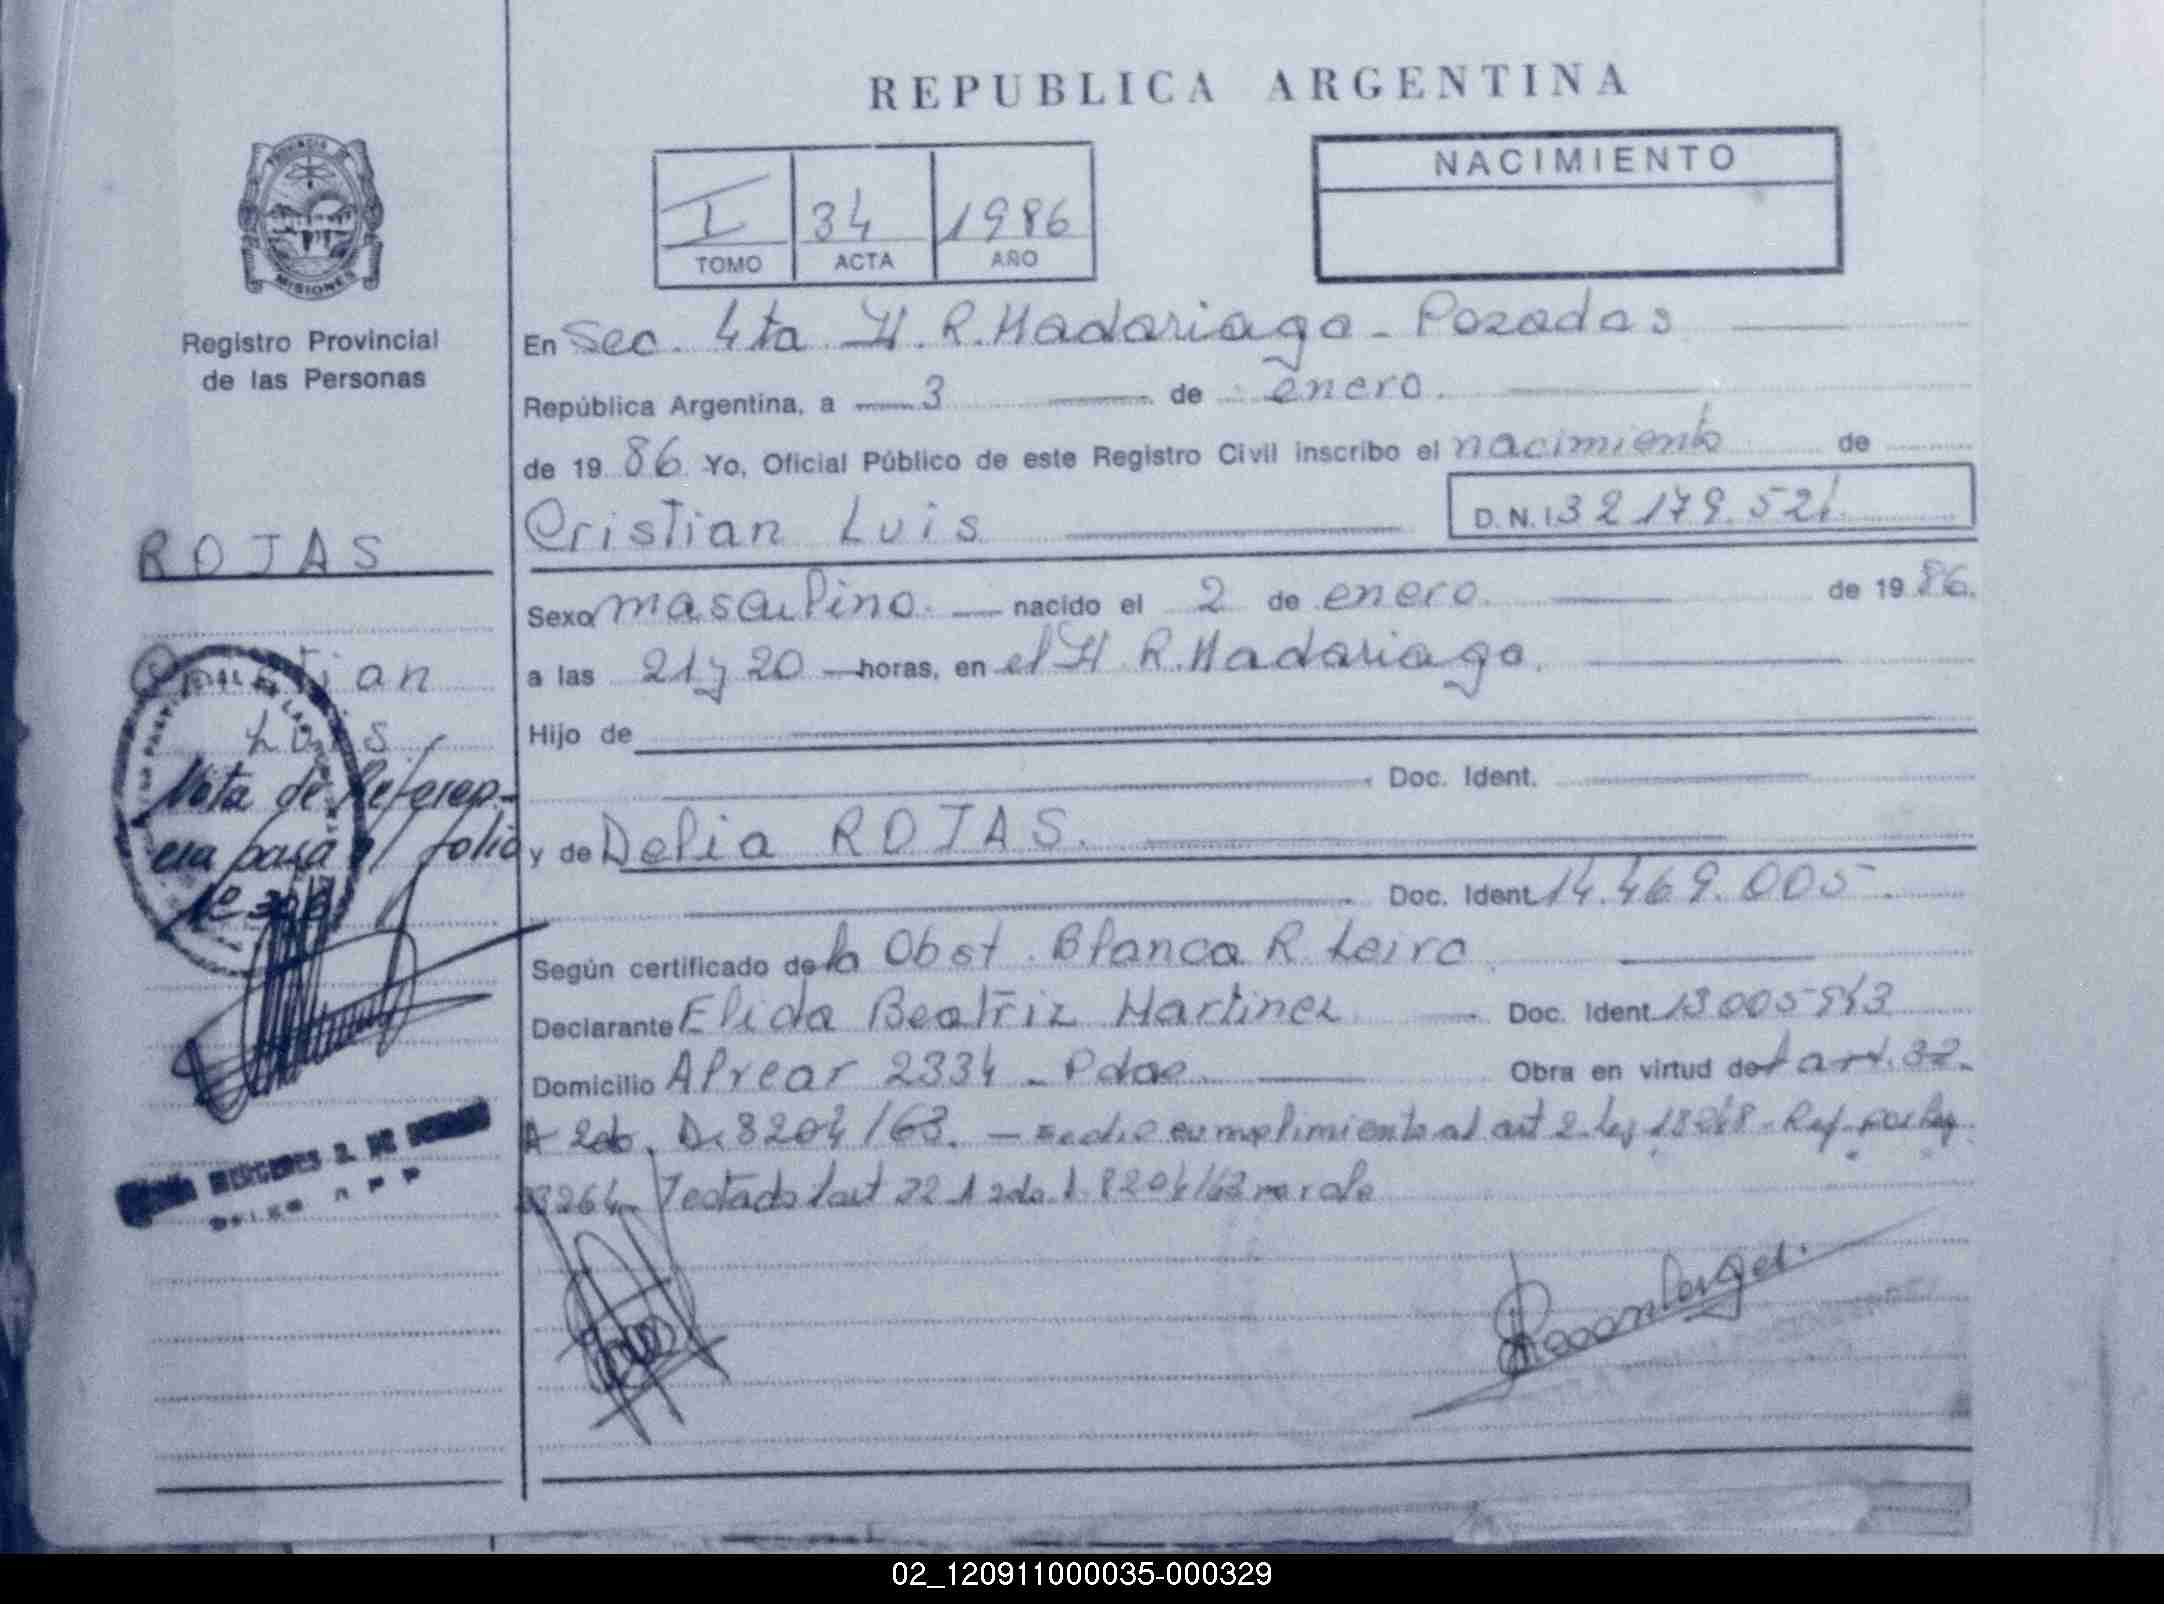 REPUBLICA ARGENTINA
PROVINCIA DE
MISIONES
Registro Provincial
de las Personas
I 34 1986
TOMO ACTA AÑO
NACIMIENTO
En Sec. 4ta H. R. Madariaga - Posadas
República Argentina, a 3 de enero
de 19 86 Yo, Oficial Público de este Registro Civil inscribo el nacimiento de
Cristian Luis
D.N.I. 32.179.521
ROJAS
Cristian
Luis
Nota de Referen-
cia pasa al folio
Sexo masculino nacido el 2 de enero de 19 86.
a las 21 y 20 horas, en el H. R. Madariaga.
Hijo de
Doc. Ident.
y de Delia ROJAS.
Doc. Ident. 14.469.005
Según certificado de la Obst. Blanca R. Leiro
Declarante Elida Beatriz Martinez Doc. Ident. 13005
Domicilio Alvear 2334 - Pdas Obra en virtud del art. 32
A 2do. D. 8204/63. cumplimiento al art 2 ley
Testado art 8204/63 no vale
02_120911000035-000329